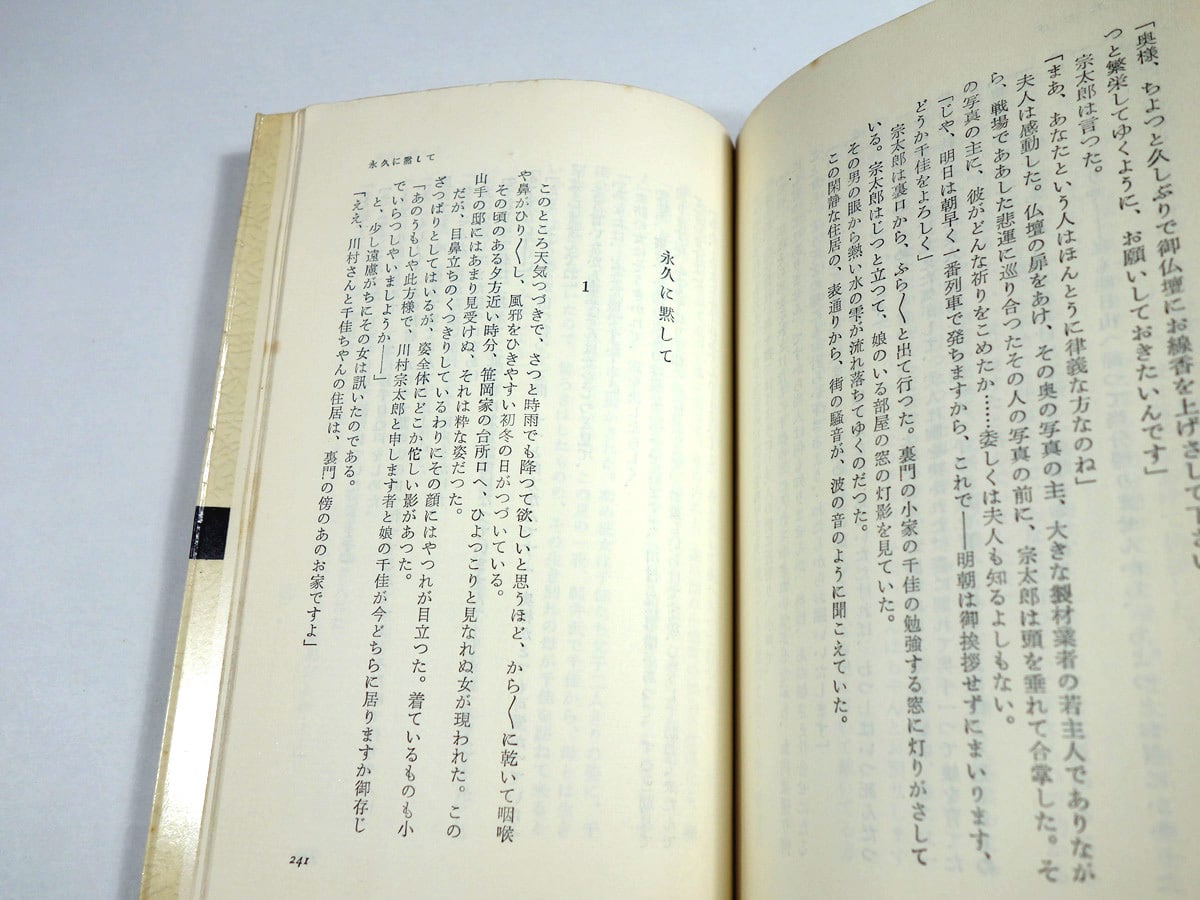 「奥様、ちよつと久しぶりで御仏壇にお線香を上げさして下さい
つと繁栄してゆくように、お願いしておきたいんです」
宗太郎は言つた。
「まあ、あなたという人はほんとうに律義な方なのね」
夫人は感動した。仏壇の扉をあけ、その奥の写真の主、大きな製材業者の若主人でありなが
ら、戦場でああした悲運に巡り合つたその人の写真の前に、宗太郎は頭を垂れて合掌した。そ
の写真の主に、彼がどんな祈りをこめたか……委しくは夫人も知るよしもない。
「じや、明日は朝早く一番列車で発ちますから、これで――明朝は御挨拶せずにまいります、
どうか千佳をよろしく」
宗太郎は裏口から、ふら〱と出て行つた。裏門の小家の千佳の勉強する窓に灯りがさして
いる。宗太郎はじつと立つて、娘のいる部屋の窓の灯影を見ていた。
その男の眼から熱い水の雫が流れ落ちてゆくのだつた。
この閑静な住居の、表通りから、街の騒音が、波の音のように聞こえていた。
永久に黙して
永久に黙して
1
このところ天気つづきで、さつと時雨でも降つて欲しいと思うほど、から〱に乾いて咽喉
や鼻がひり〱し、風邪をひきやすい初冬の日がつづいている。
その頃のある夕方近い時分、笹岡家の台所口へ、ひよつこりと見なれぬ女が現われた。この
山手の邸にはあまり見受けぬ、それは粋な姿だつた。
だが、目鼻立ちのくつきりしているわりにその顔にはやつれが目立つた。着ているものも小
ざつぱりとしてはいるが、姿全体にどこか佗しい影があつた。
「あのうもしや此方様で、川村宗太郎と申します者と娘の千佳が今どちらに居りますか御存じ
でいらつしやいましようか――」
と、少し遠慮がちにその女は訊いたのである。
「ええ、川村さんと千佳ちやんの住居は、裏門の傍のあのお家ですよ」
241